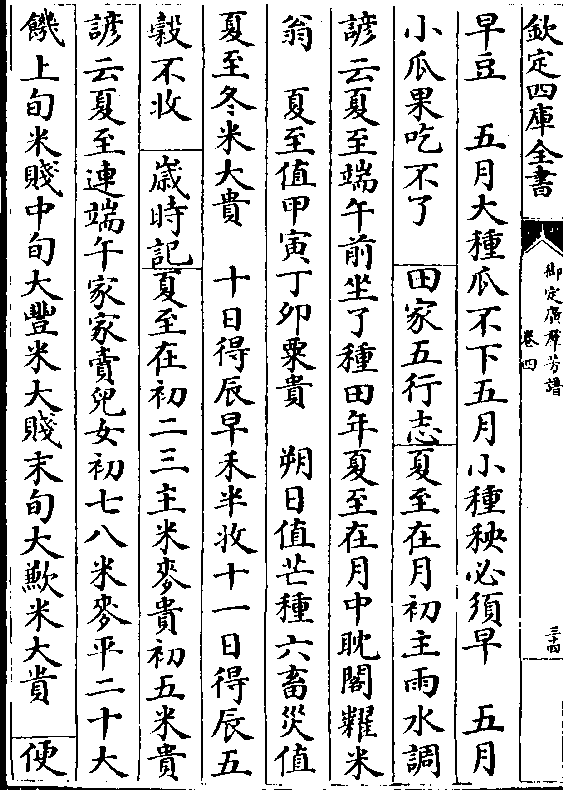 欽定四庫全書
御定廣羣芳譜
卷四
三十四
早豆　五月大種瓜不下五月小種秧必須早　五月
小瓜果吃不了　田家五行志夏至在月初主雨水調
諺云夏至端午前坐了種田年夏至在月中耽閣糶米
翁　夏至值甲寅丁卯粟貴　朔日值芒種六畜災值
夏至冬米大貴　十日得辰早禾半收十一日得辰五
穀不收　歲時記夏至在初二三主米麥貴初五米貴
諺云夏至連端午家家賣兒女初七八米麥平二十大
饑上旬米賤中旬大豐米大賤末旬大歉米大貴　便